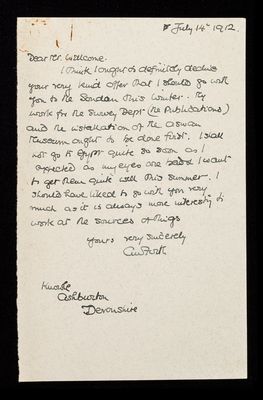 July 14th 1912.
Dear Mr. Wellcome.
I think I ought to definitely decline
your very kind offer that I should go with
you to the Soudan this winter. My
work for the Survey Dept (the Publications)
and the installation of the Aswan
Museum ought to be done first. I shall
not go to Egypt quite so soon as I
expected as my eyes are bad & I want
to get them quite well this summer. I
should have liked to go with you very
much as it is always more interesting to
work at the sources of things
yours very sincerely
Knowle
Ashburton
Devonshire